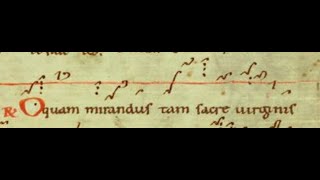 ℟ O quam mirandus tam sacre uirginis